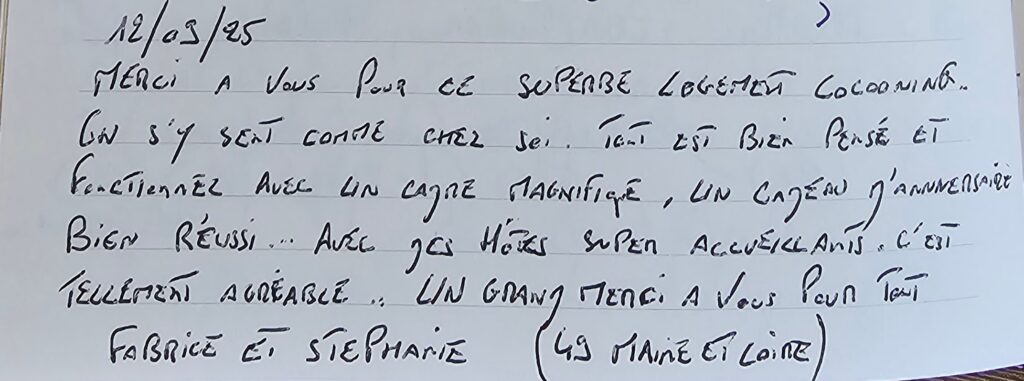 12/09/25
MERCI A VOUS POUR CE SUPERBE LOGEMENT COCOONING.
ON S'Y SENT COMME CHEZ SOI. TOUT EST BIEN PENSÉ ET
FONCTIONNEL AVEC UN CADRE MAGNIFIQUE, UN CADEAU D'ANNIVERSAIRE
BIEN RÉUSSI... AVEC DES HÔTES SUPER ACCUEILLANTS. C'EST
TELLEMENT AGRÉABLE.. UN GRAND MERCI A VOUS POUR TOUT
FABRICE ET STEPHANIE (49 MAINE ET LOIRE)